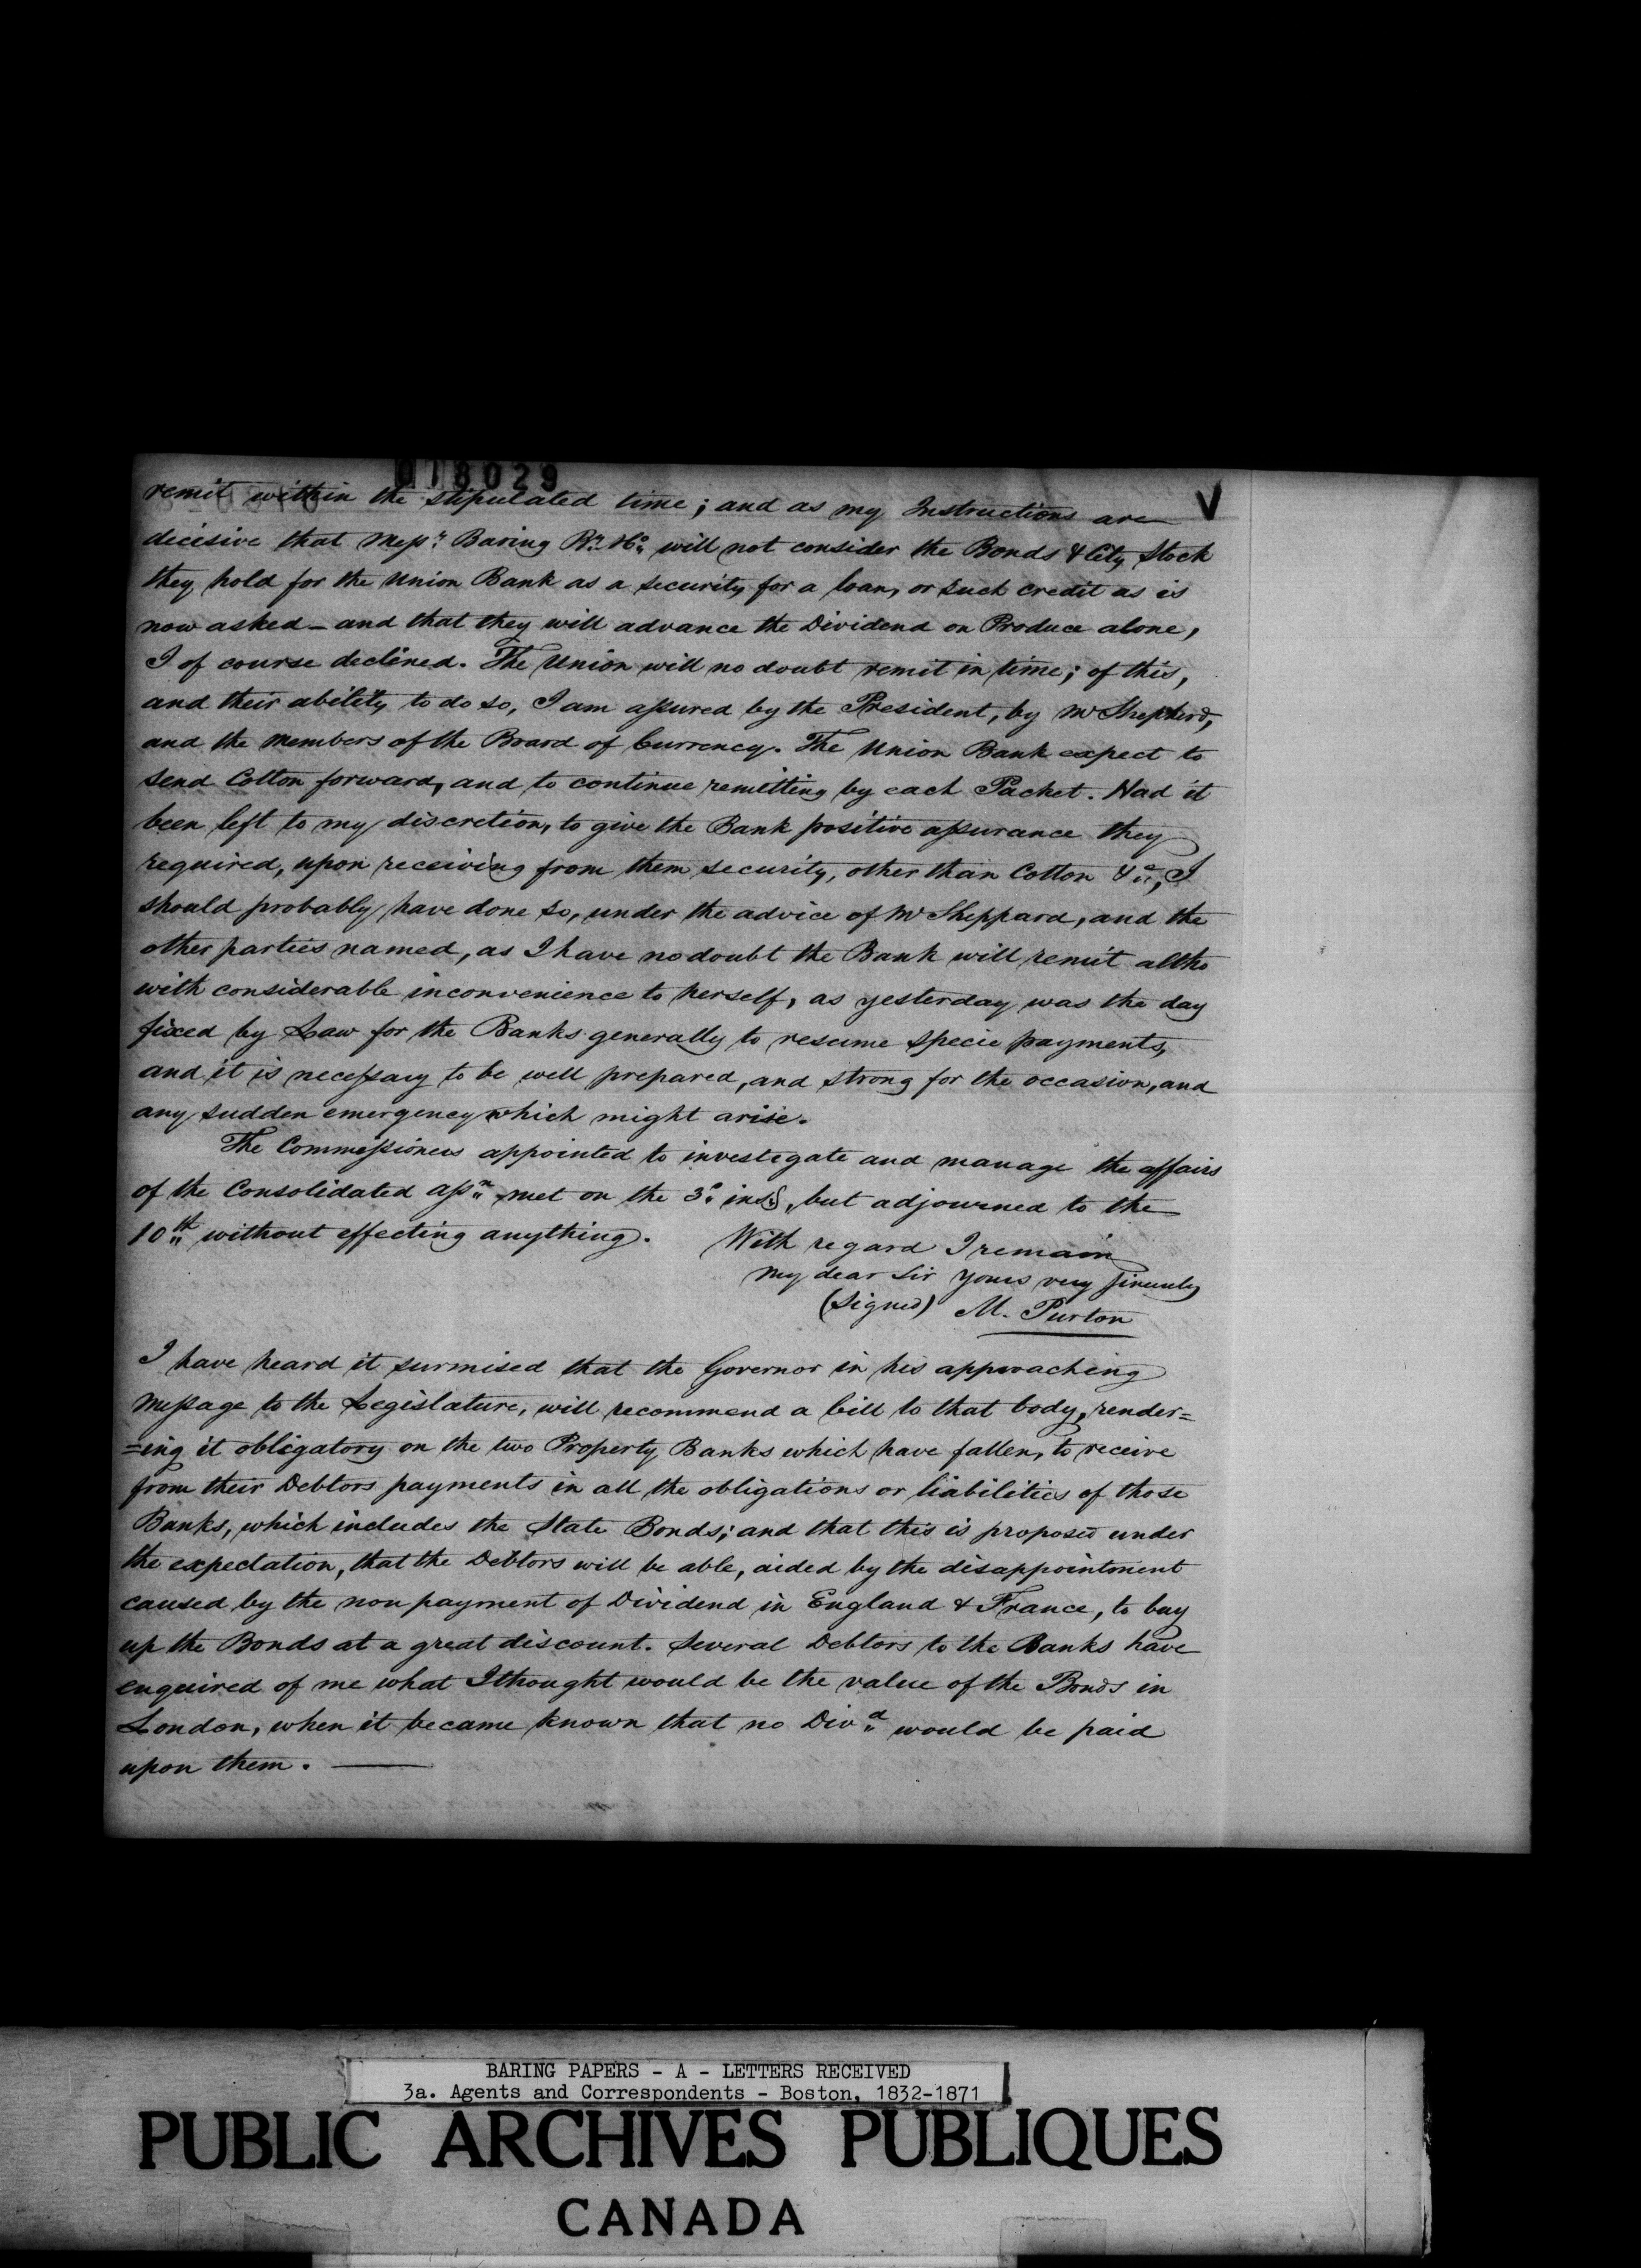 018029
remit within the stipulated time; and as my Instructions are
V
decisive that Messrs. Baring Brs. & Co. will not consider the Bonds & City Stock
they hold for the Union Bank as a security for a loan, or such credit as is
now asked – and that they will advance the Dividend on Produce alone,
I of course declined. The Union will no doubt remit in time; of this,
and their ability to do so, I am assured by the President, by Mr Shepherd,
and the Members of the Board of Currency. The Union Bank expect to
send Cotton forward, and to continue remitting by each Packet. Had it
been left to my discretion, to give the Bank positive assurance they
required, upon receiving from them security, other than Cotton &c., I
should probably have done so, under the advice of Mr Sheppard, and the
other parties named, as I have no doubt the Bank will remit altho
with considerable inconvenience to herself, as yesterday was the day
fixed by Law for the Banks generally to resume specie payments,
and it is necessary to be well prepared, and strong for the occasion, and
any sudden emergency which might arise.
The Commissioners appointed to investigate and manage the affairs
of the Consolidated Assn. met on the 3d. inst., but adjourned to the
10th without effecting anything. With regard I remain
My dear Sir Yours very sincerely
(Signed) M. Purton
I have heard it surmised that the Governor in his approaching
Message to the Legislature, will recommend a bill to that body, render=
=ing it obligatory on the two Property Banks which have fallen, to receive
from their Debtors payments in all the obligations or liabilities of those
Banks, which includes the State Bonds; and that this is proposed under
the expectation, that the Debtors will be able, aided by the disappointment
caused by the non payment of Dividend in England & France, to buy
up the Bonds at a great discount. Several Debtors to the Banks have
enquired of me what I thought would be the value of the Bonds in
London, when it became known that no Divd. would be paid
upon them. —
BARING PAPERS - A - LETTERS RECEIVED
3a. Agents and Correspondents - Boston, 1832-1871
PUBLIC ARCHIVES PUBLIQUES
CANADA